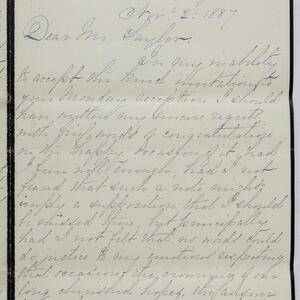 Nov 2d 1887
Dear Mr. Taylor.
In my inability
to accept the kind invitation to
your Monday reception I should
have written my sincere regrets
with my words of congratulation
on the happy occasion of it, had
I been well enough, had I not
feared that such a note might
imply a supposition that I should
be missed there, but principally
had I not felt that no words could
do justice to my emotions respecting
that occasion; the crowning of our
long cherished hopes, the